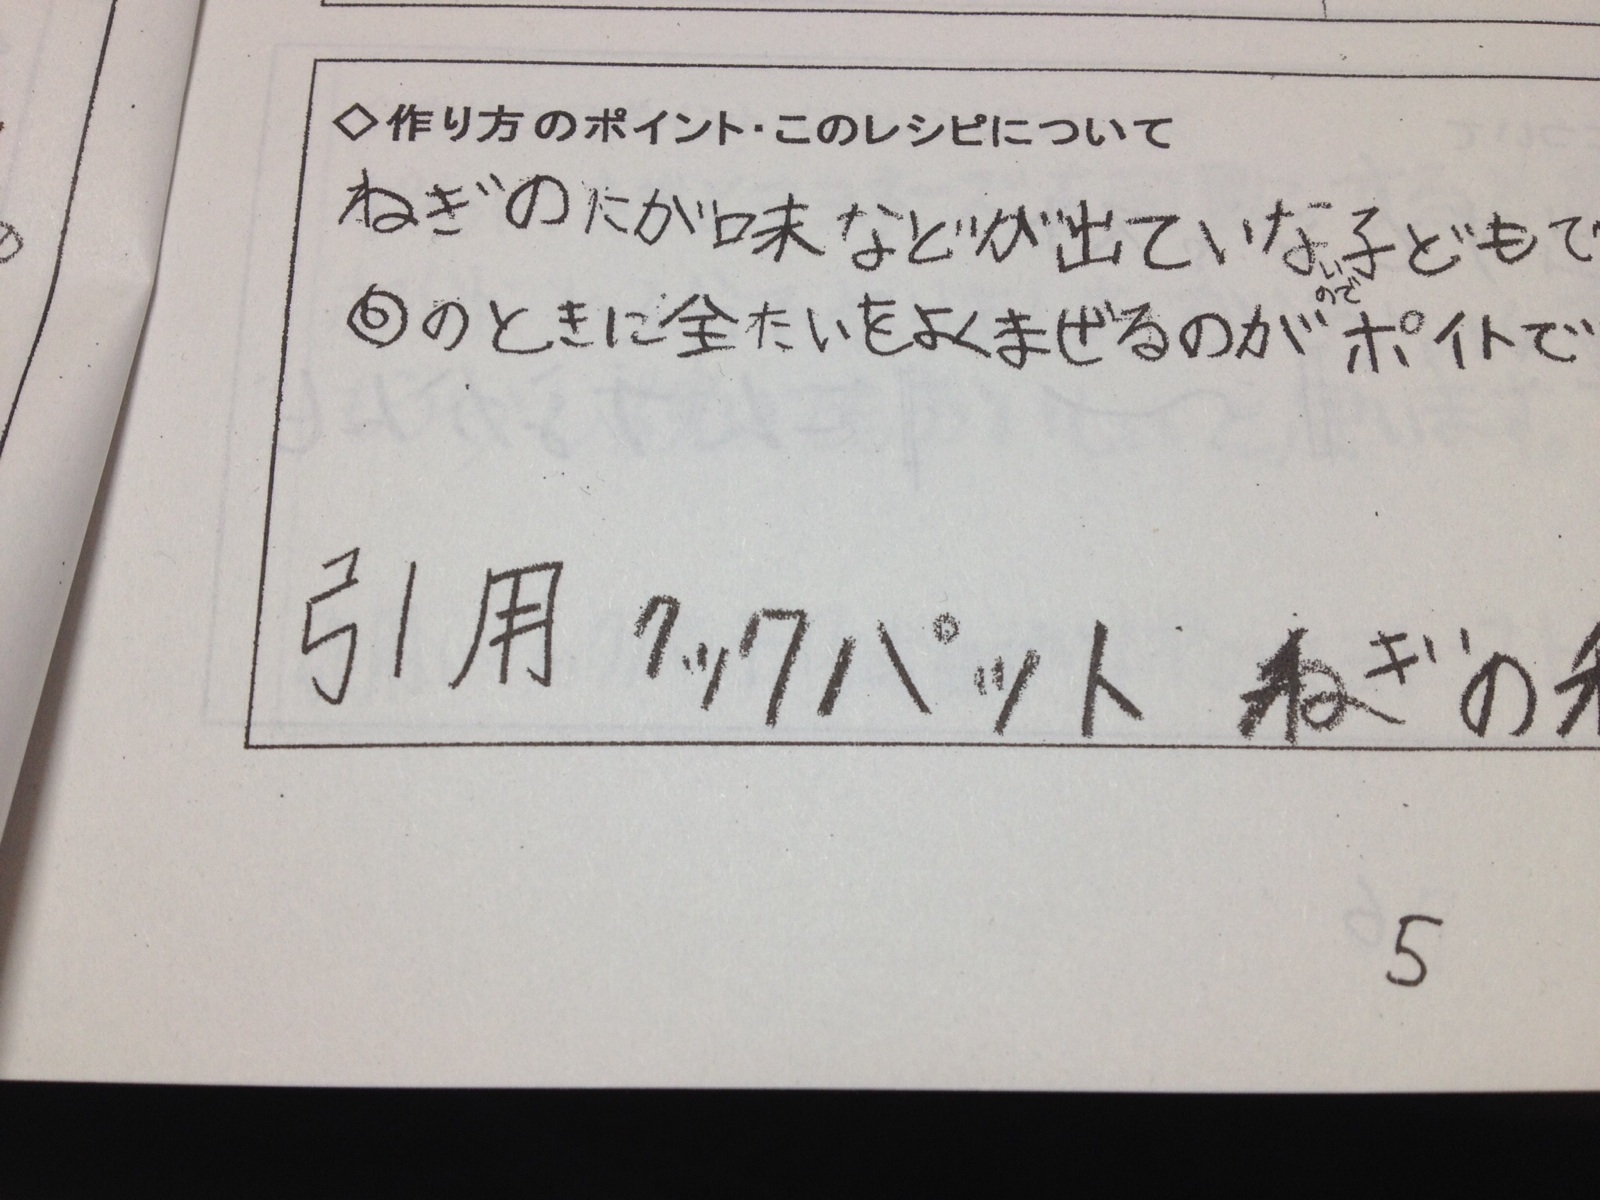 ◇作り方のポイント・このレシピについて
ねぎのにが味などが出ていないので子どもで
⑥のときに全たいをよくまぜるのがポイトで
引用 クックパット ねぎの
5